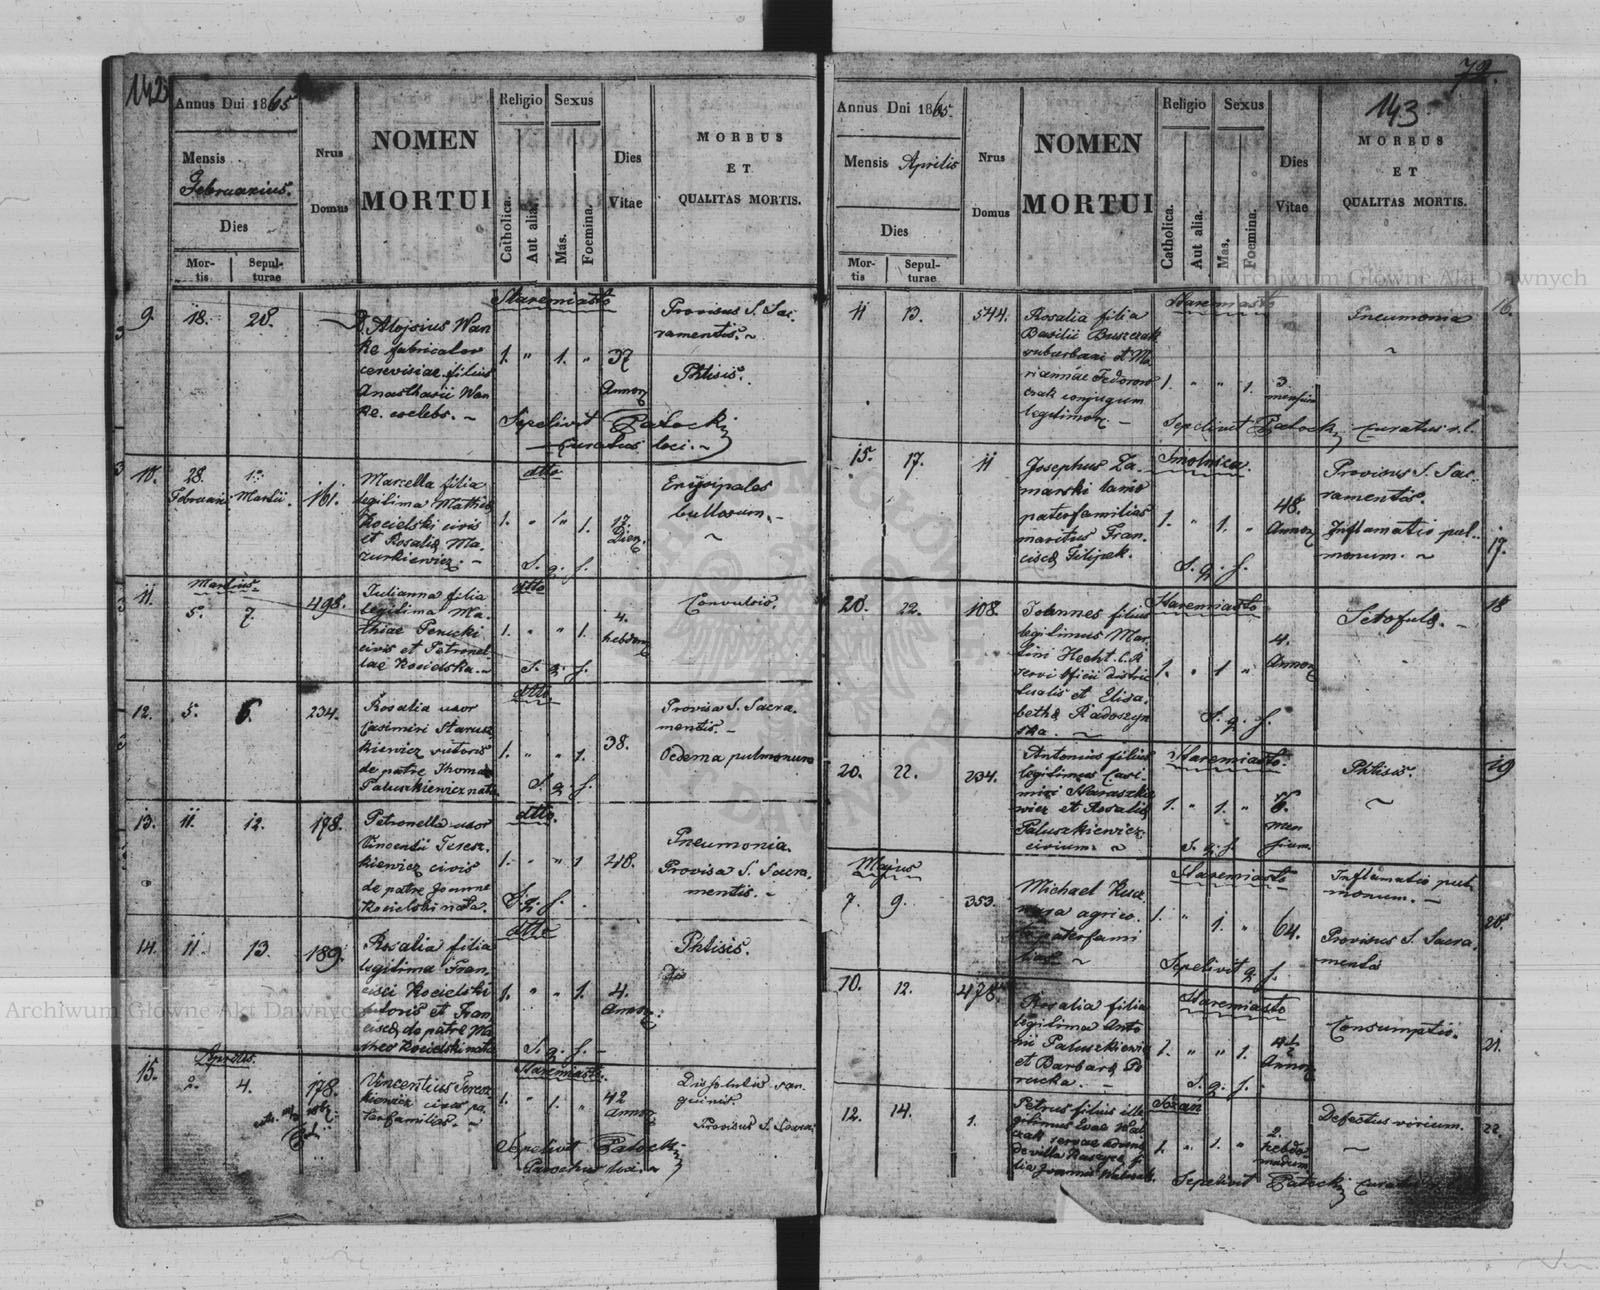 142
Annus Dni 1865
Mensis
Februarius.
Dies
Mor-
tis
Sepul-
turae
Nrus
Domus
NOMEN
MORTUI
Religio
Catholica.
Aut alia.
Sexus
Mas.
Foemina.
Dies
Vitae
MORBUS
ET
QUALITAS MORTIS.
9.
18.
20.
Staremiasto
Aloisius Wan
ke fabricator
cerevisiae filius
Anasthasii Wan
ke. coelebs. ~
1. " 1. "
37
Annor
Provisus S. Sac.
ramentis. ~
Phtisis.
Sepelivit Patocki
Curatus loci. ~
10.
28. 1.
Februarii Martii
161.
dtto
Marcella filia
legitima Mathiae
Kocielski civis
et Rosaliae Ma.
zurkiewicz. -
1. " " 1.
17.
Dier.
S. q. f.
Erisipales
bullosum. ~
11.
Martius
5. 7.
498.
dtto
Julianna filia
legitima Ma.
thiae Penucki
civis et Petronel
lae Kocielska. ~
1. " " 1.
4.
hebdom
S. q. f.
Convulsio.
12.
5. 6.
234.
dtto
Rosalia uxor
Casimiri Starusz
kiewicz sutoris
de patre Thoma
Paluszkiewicz nata
1. " " 1.
38.
S. q. f.
Provisa S. Sacra.
mentis. -
Oedema pulmonum
13.
11. 12.
178.
dtto.
Petronella uxor
Vincentii Teresz.
kiewicz civis
de patre Joanne
Kocielski nata.
1. " " 1
48.
S. q. f.
Pneumonia.
Provisa S. Sacra.
mentis. -
14.
11. 13.
189.
dtto
Rosalia filia
legitima Fran.
cisci Kocielski
sutoris et Fran.
ciscae de patre Ma
theo Kocielski nata
1. " " 1.
4.
Annor.
S. q. f. -
Phtisis.
15.
Aprilis.
2. 4.
178.
Staremiasto.
Vincentius Teresz
kiewicz cives pa.
terfamilias. ~
1. " 1. "
42
Annor
Dissolutio san.
guinis.
Provisus S. Sacra.
Sepelivit Patocki
Parochus loci ~
79.
143.
Annus Dni 1865.
Mensis Aprilis
Dies
Mor-
tis
Sepul-
turae
Nrus
Domus
NOMEN
MORTUI
Religio
Catholica.
Aut alia.
Sexus
Mas.
Foemina.
Dies
Vitae
MORBUS
ET
QUALITAS MORTIS.
11 13.
544.
Staremiasto
Rosalia filia
Basilii Buszczak
suburbani et Ma
riannae Fedorow
czak conjugum
legitimor. -
1. " " 1.
3
mensium
Pneumonia
16.
Sepelivit Patocki Curatus s. l.
15. 17.
11
Smolnica.
Josephus Za.
marski lanio
paterfamilias
maritus Fran.
ciscae Filipek.
1. " 1. "
48.
Annor
S. q. f.
Provisus S. Sac.
ramentis.
Inflamatio pul.
monum. ~
17.
20. 22.
108.
Staremiasto
Joannes filius
legitimus Mar.
tini Hecht C. R
servi officii distric
tualis et Elisa.
bethae Radoszyn
ska. ~
1. " 1 "
4.
Annor
S. q. f.
Scrofulae. -
18
20. 22.
234.
Staremiasto.
Antonius filius
legitimus Casi
miri Staraszkie
wicz et Rosaliae
Paluszkiewicz
civium. ~
1. " 1. "
6.
men
sium.
S. q. f.
Phtisis.
19
Majus
7. 9.
353.
Staremiasto
Michael Kucz
agrico.
paterfami
lias. ~
1. " 1. "
64.
Inflamatio pul
monum. ~
Provisus S. Sacra.
mentis
20.
Sepelivit q. f.
10. 12.
478.
Staremiasto
Rosalia filia
legitima Anto
ni Paluszkiewicz
et Barbarae Po
rucka. -
1. " " 1.
Annor
S. q. f.
Consumptio.
21.
12. 14.
1.
Sozań
Petrus filius ille
gitimus Evae Wal
czak servae
de villa fi
lia Joannis Walczak.
1. " 1. "
2.
hebdo
madum
Defectus virium.
22.
Sepelivit Patocki Curatus
Archiwum Główne Akt Dawnych
Archiwum Główne Akt Dawnych